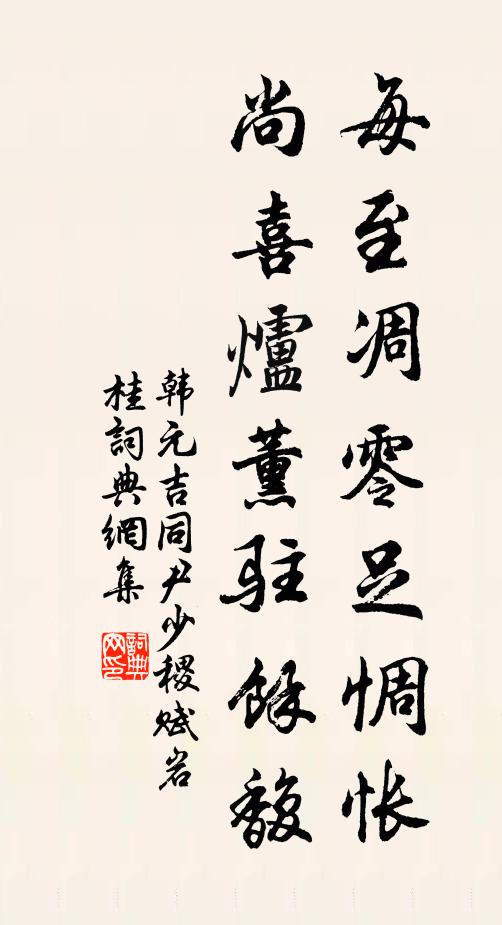 每至凋零足惆怅
尚喜爐薰驻餘馥
韩元吉同尹少稷赋岩
桂詞典網集
詞典网印